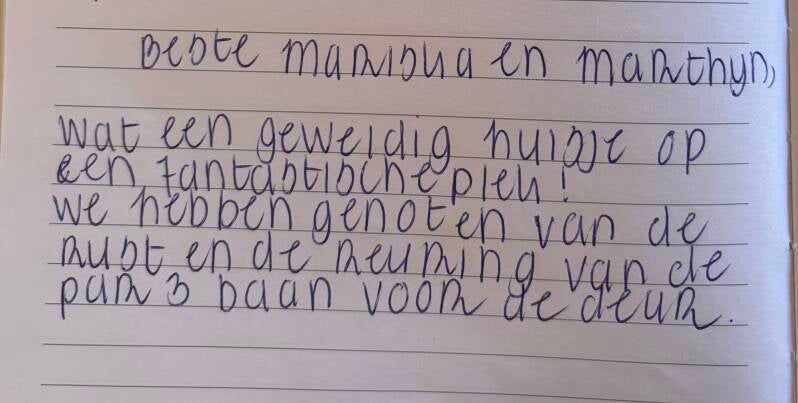 Beste Mariska en Marthyn,
wat een geweldig huisje op
een fantastische plek!
We hebben genoten van de
rust en de reuring van de
par 3 baan voor de deur.